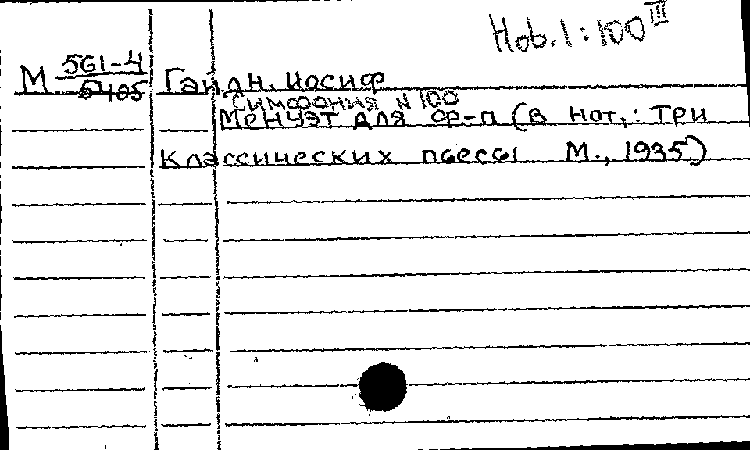 Hob. I:100 III
М 561-4
5405
Гайдн, Иосиф
Симфония N 100
Менуэт для ф-п (в нот.: Три
классических пьесы М., 1935)